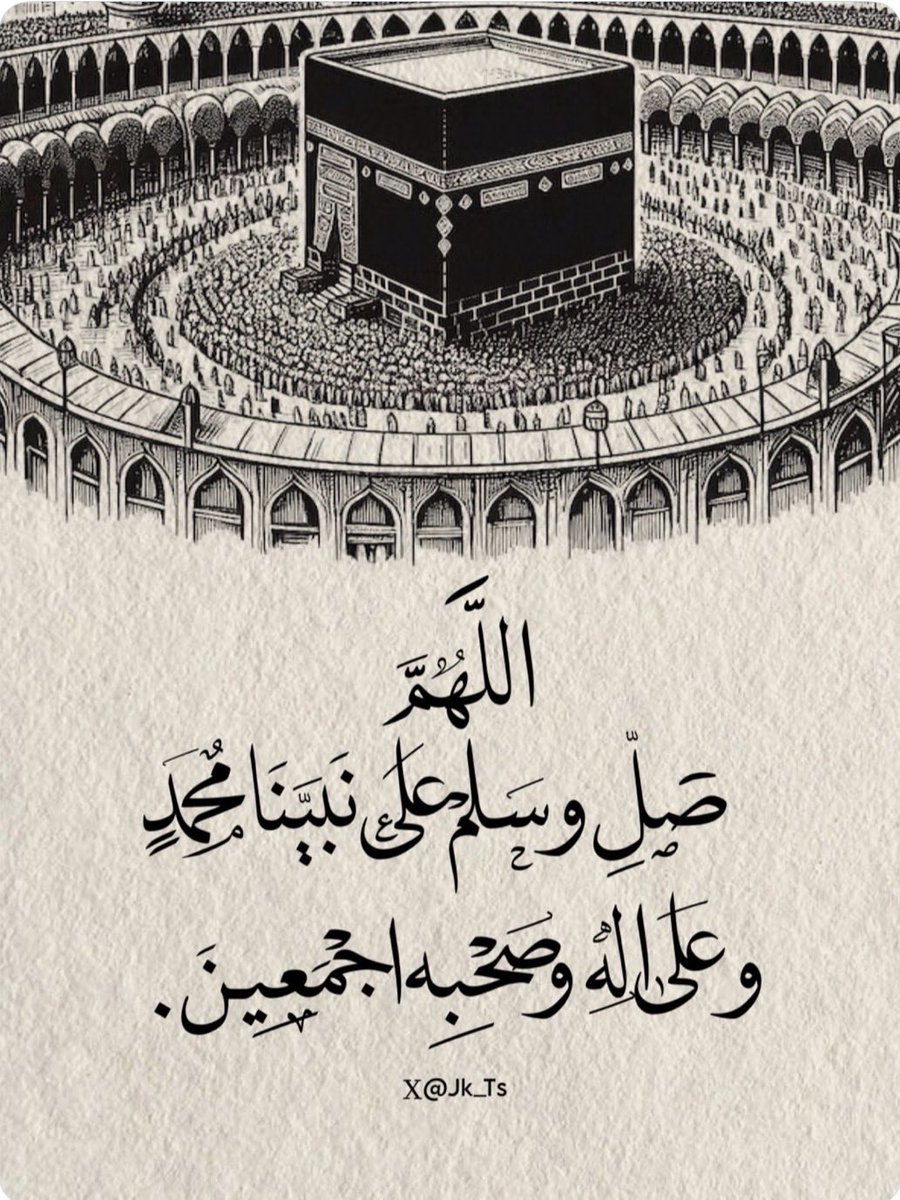 اللَّهُمَّ
صَلِّ وسَلم عَلَى نَبيَّنَا مُحَمَدٍ
وعَلَى الِهِ وصَحْبِه اجْمَعِينَ.
X@Jk_Ts